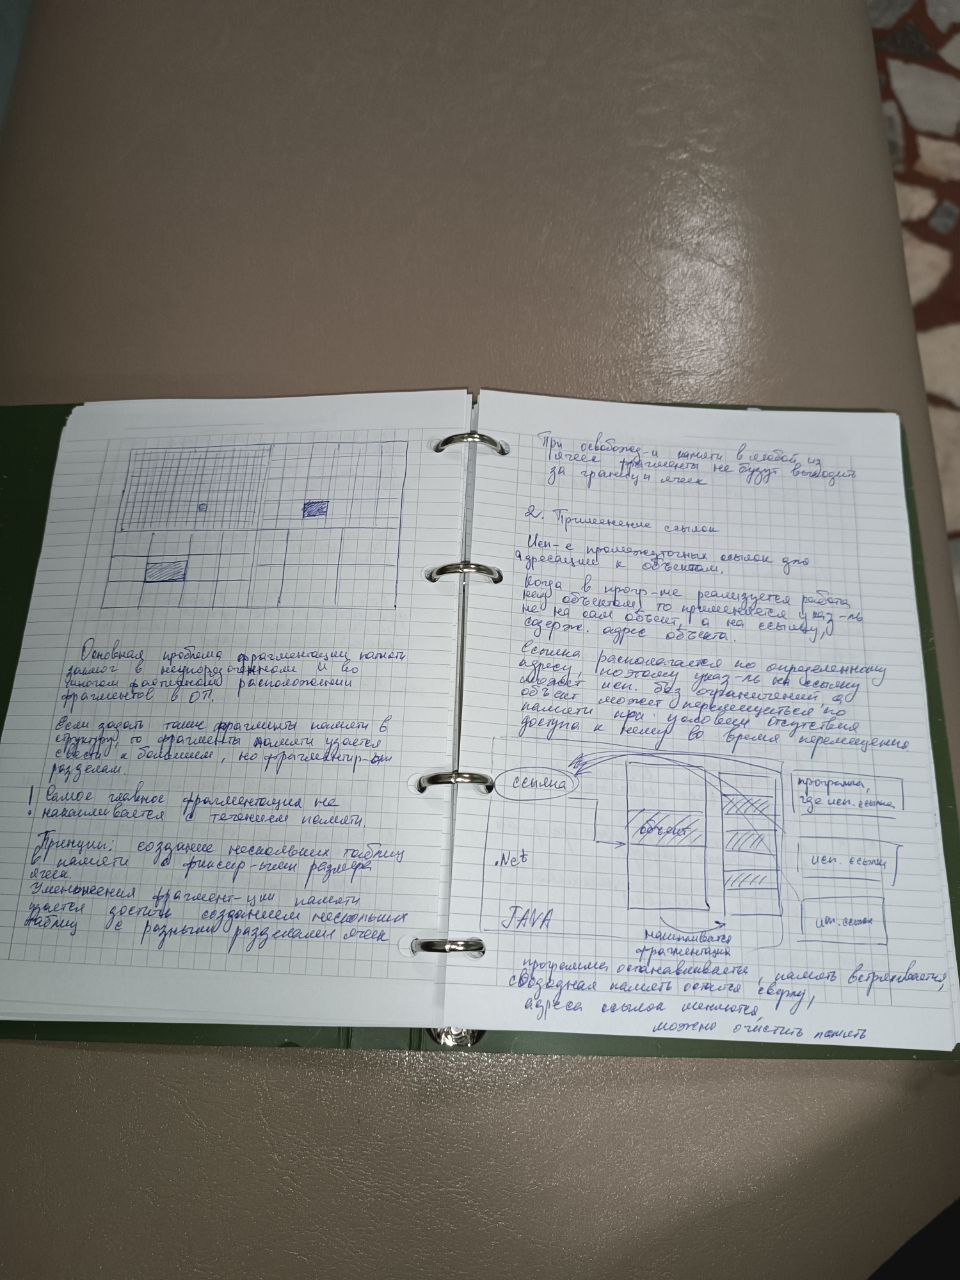 Основная проблема фрагментации памяти
заключ в неупорядоченном и во
многом фрагменты расположении
фрагментов в ОП.
Если задать такие фрагменты памяти в
структуру, то фрагменты памяти удается
свести к большим, не фрагментир-ым
разделам
! Самое главное фрагментация не
накапливается с течением памяти.
Принцип: создание нескольких таблиц
в памяти с фиксир-ным размера
ячеек
Уменьшения фрагмент-ции памяти
удается достичь созданием нескольких
таблиц с разными разделами ячеек
При освобожд-и памяти в любой из
ячеек фрагменты не будут выходить
за границы ячеек
2. Применение ссылок
Исп-е промежуточных ссылок для
адресации к объектам.
Когда в прогр-ме реализуется работа
над объектом, то применяется указ-ль
не на сам объект, а на ссылку,
содерж. адрес объекта.
Ссылка располагается по определенному
адресу, поэтому указ-ль на ссылку
может исп. без ограничений, а
объект может перемещаться по
памяти при условии отсутствия
доступа к нему во время перемещения
ссылка
объект
программа,
где исп. ссылка
исп. ссылки
исп. ссылок
.Net
JAVA
накапливается
фрагментация
программа останавливается, память встряхивается,
свободная память остался сверху,
адреса ссылок меняются,
можно очистить память